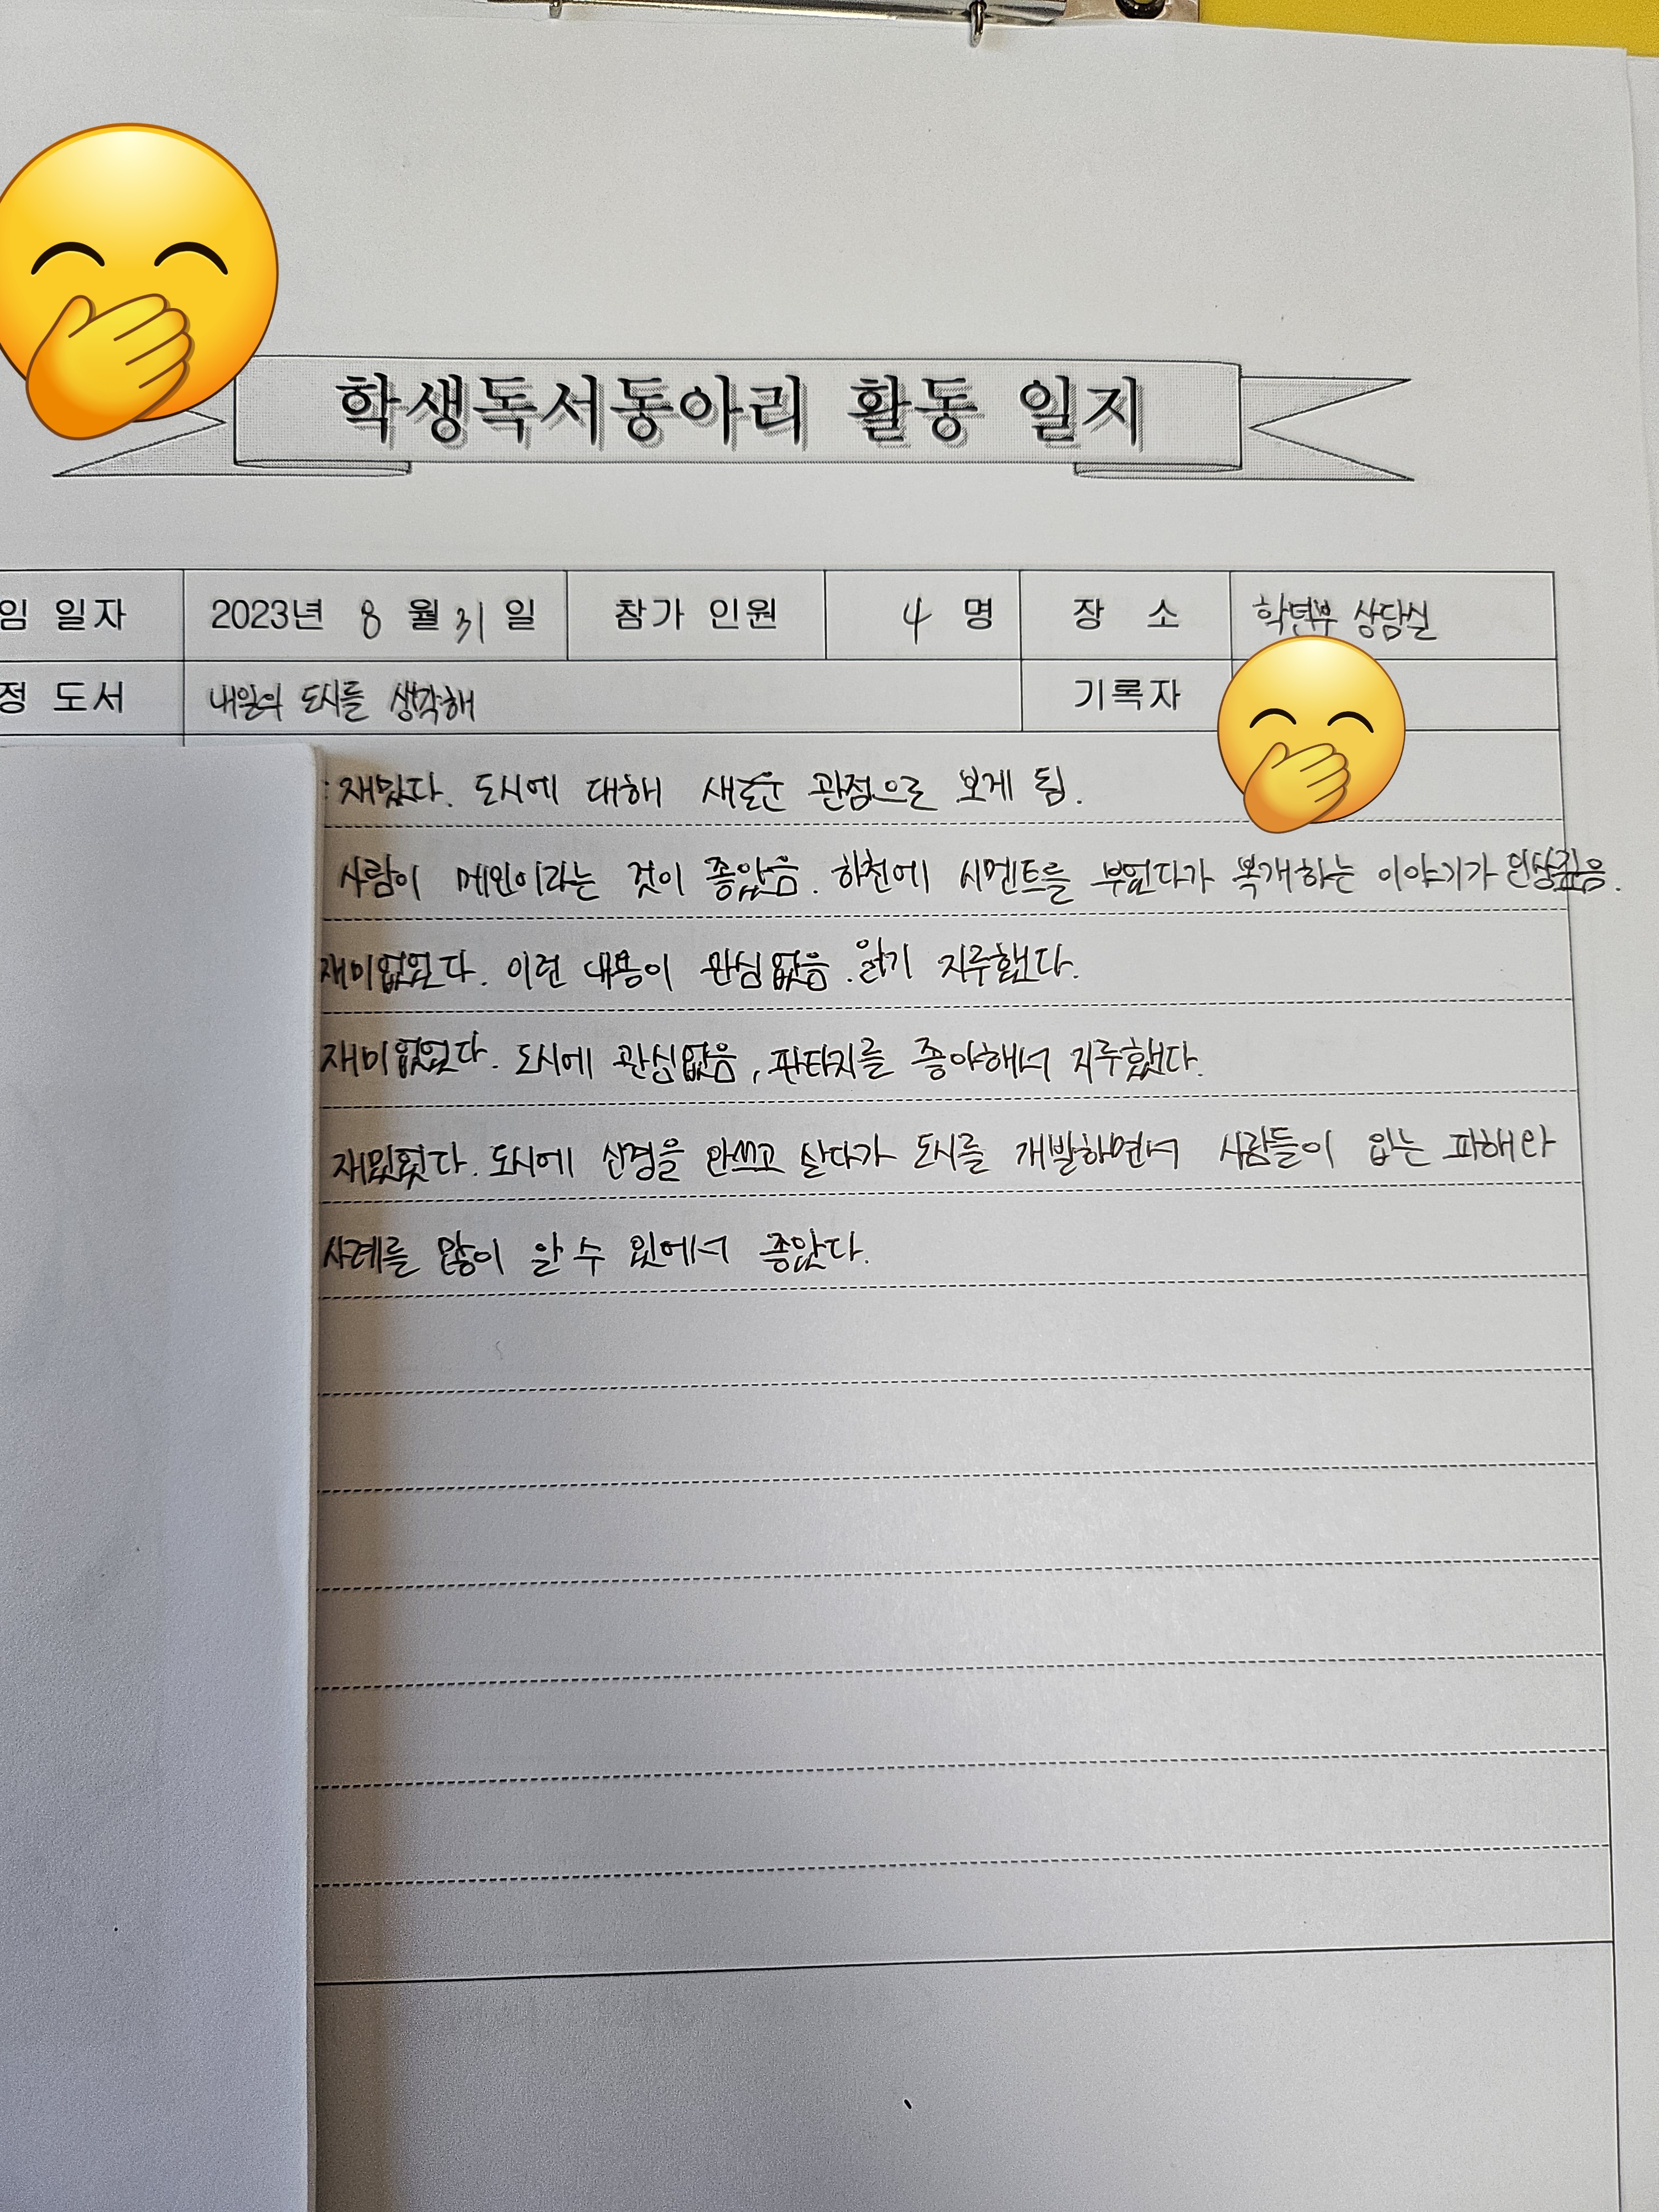 학생독서동아리 활동 일지
임 일자 2023년 8 월 31 일 참가 인원 4 명 장 소 학년부 상담실
정 도서 내일의 도시를 생각해 기록자
: 재밌다. 도시에 대해 새로운 관점으로 보게 됨.
사람이 메인이라는 것이 좋았음. 하천에 시멘트를 부었다가 복개하는 이야기가 인상깊음.
재미없었다. 이런 내용이 관심없음. 읽기 지루했다.
재미없었다. 도시에 관심없음, 판타지를 좋아해서 지루했다.
재밌었다. 도시에 신경을 안쓰고 살다가 도시를 개발하면서 사람들이 입는 피해와
사례를 많이 알 수 있에서 좋았다.